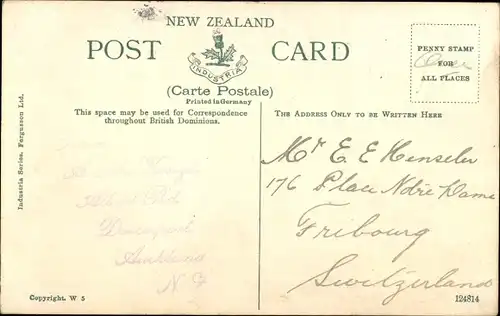 NEW ZEALAND
POST CARD
INDUSTRIA
(Carte Postale)
Printed in Germany
PENNY STAMP
FOR
ALL PLACES
This space may be used for Correspondence
throughout British Dominions.
THE ADDRESS ONLY TO BE WRITTEN HERE
Industria Series. Fergusson Ltd.
Devonport
Auckland
N Z
Mr E E Henseler
176 Place Notre Dame
Fribourg
Switzerland
Copyright. W 5
124814